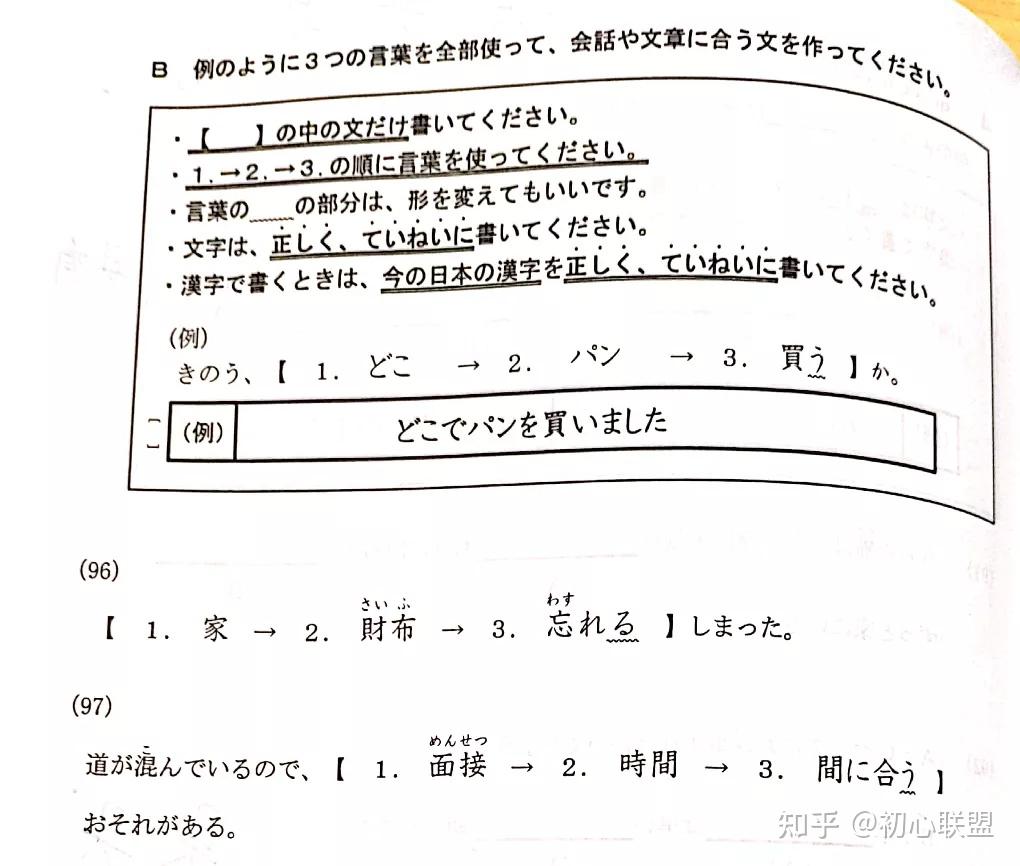 B 例のように3つの言葉を全部使って、会話や文章に合う文を作ってください。
・【 】の中の文だけ書いてください。
・1.→2.→3.の順に言葉を使ってください。
・言葉の＿＿の部分は、形を変えてもいいです。
・文字は、正しく、ていねいに書いてください。
・漢字で書くときは、今の日本の漢字を正しく、ていねいに書いてください。
(例)
きのう、【 1. どこ → 2. パン → 3. 買う 】か。
(例) どこでパンを買いました
(96)
さいふ わす
【 1. 家 → 2. 財布 → 3. 忘れる 】しまった。
(97)
こ めんせつ
道が混んでいるので、【 1. 面接 → 2. 時間 → 3. 間に合う 】
おそれがある。
知乎 @初心联盟